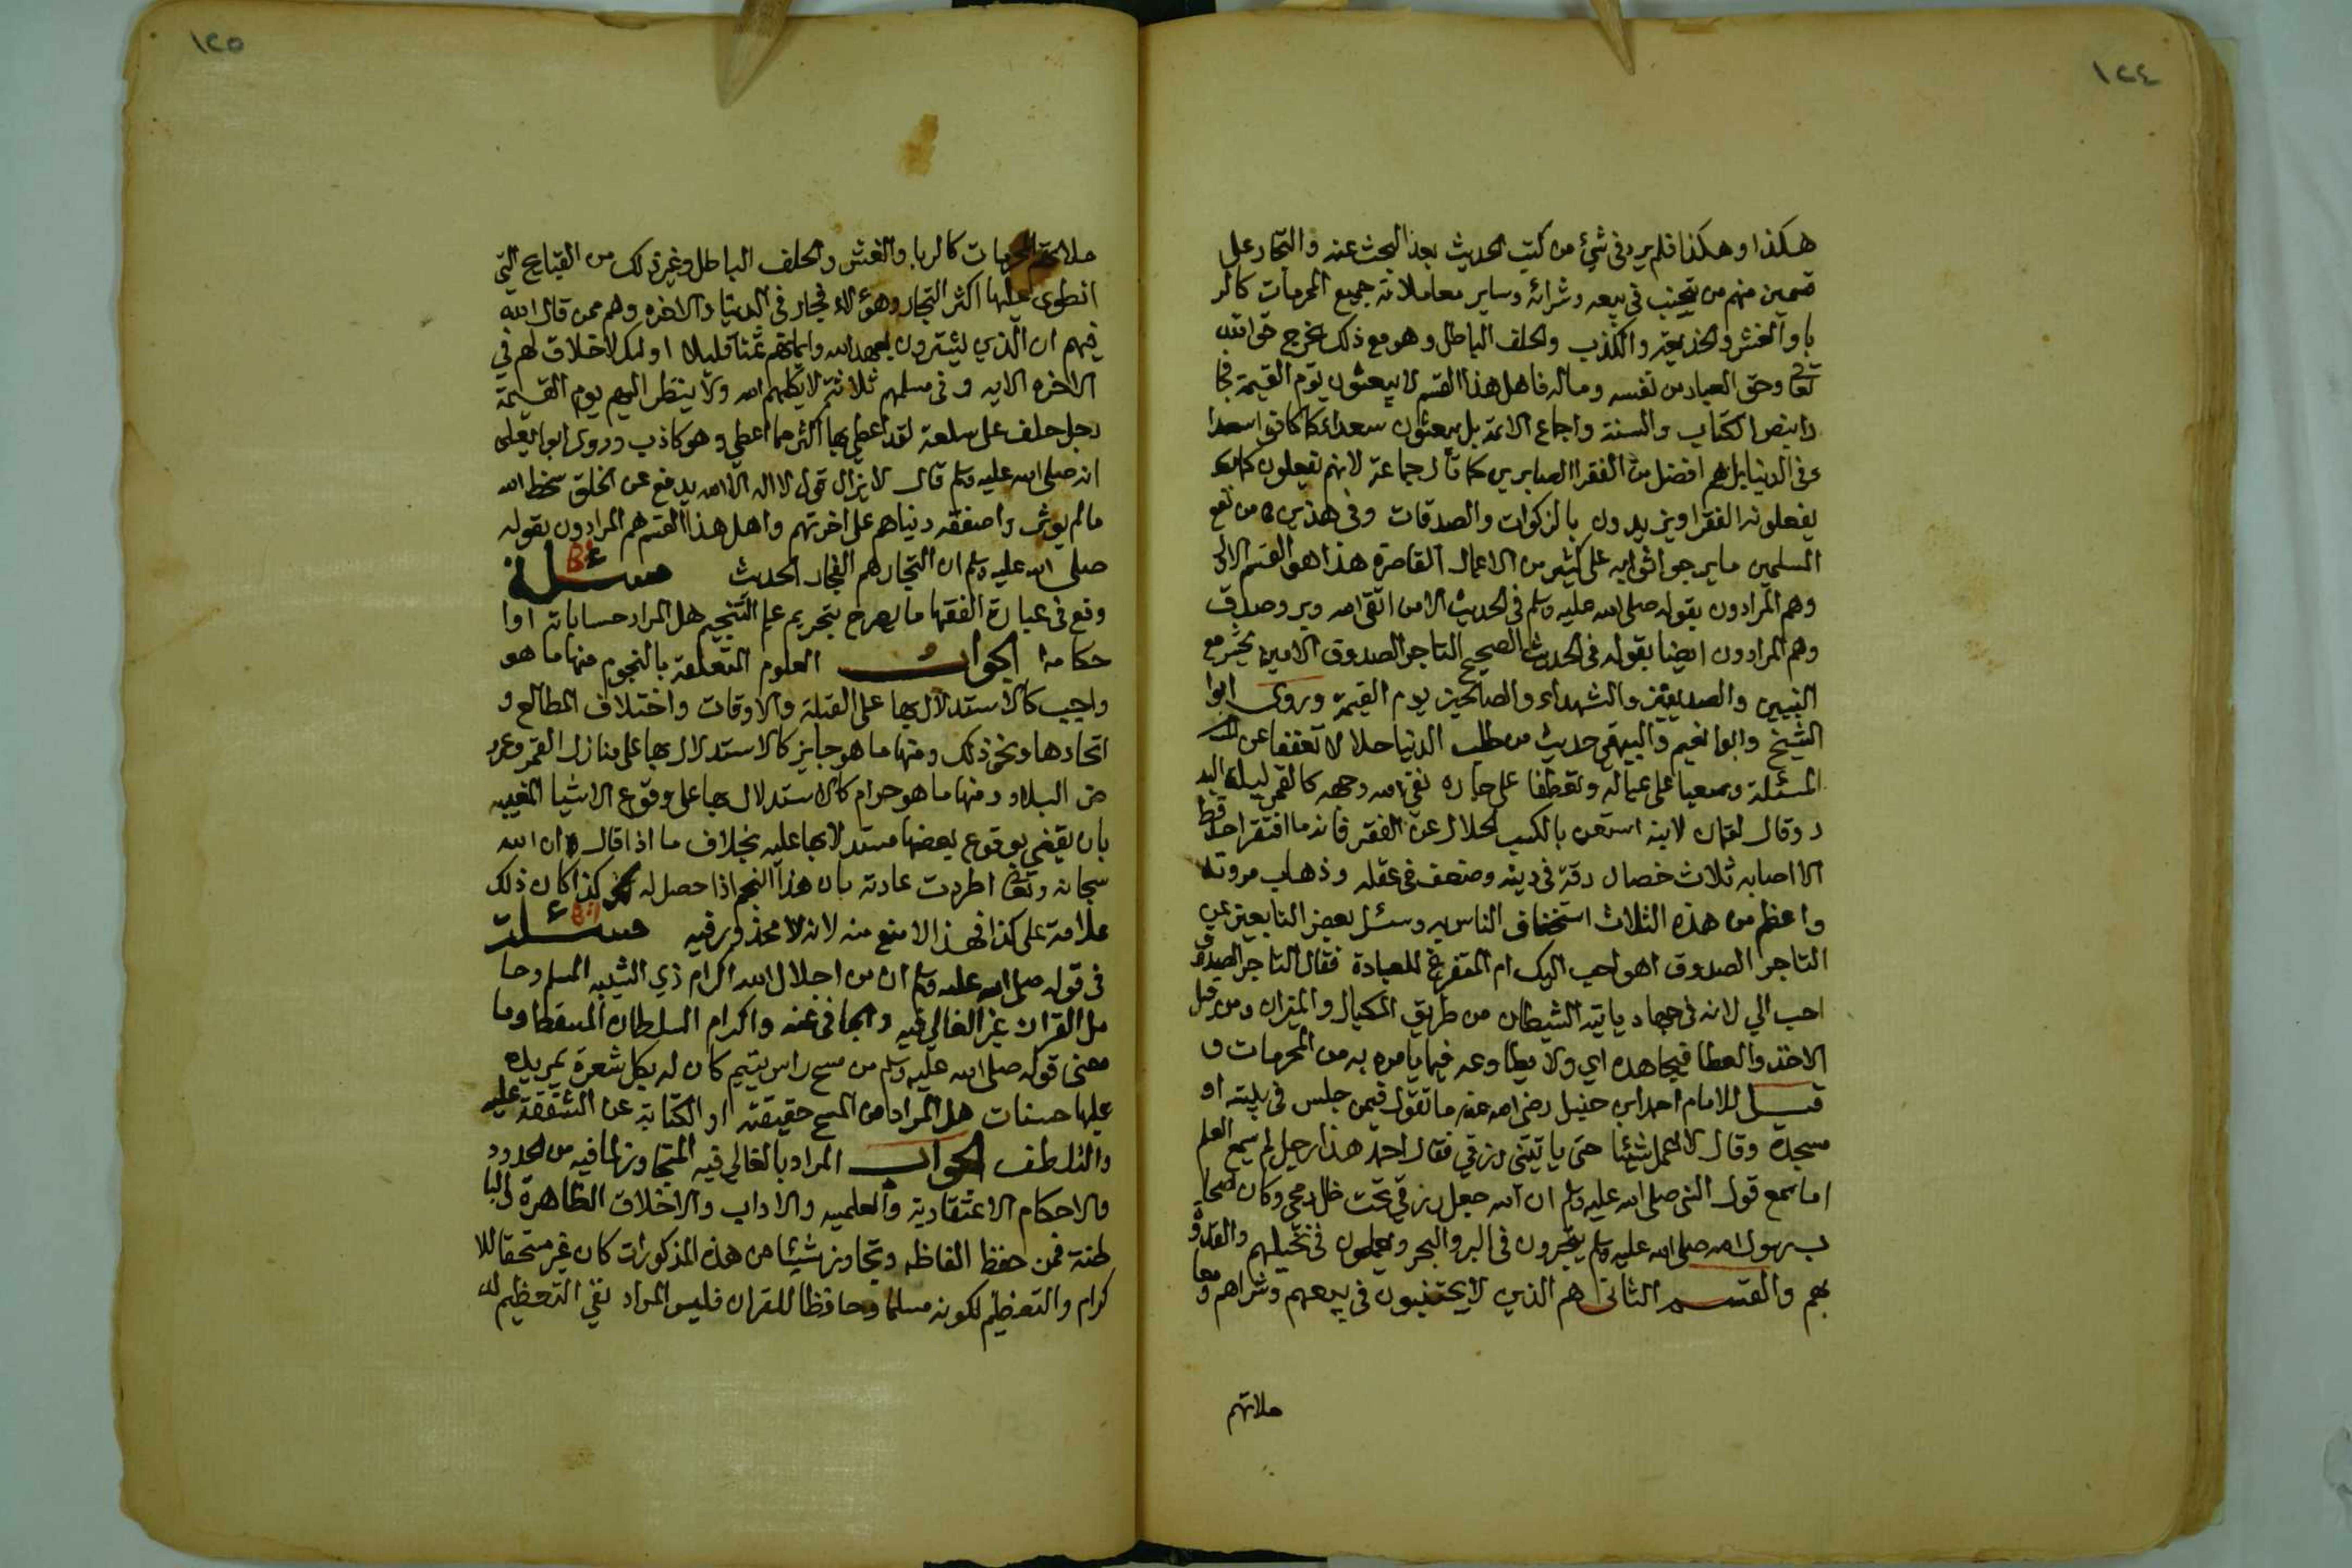 ١٢٤
هكذا وهكذا فلم يرد في شئ من كتب الحديث بعد البحث عنه والتجار على
قسمين منهم من يتجنب في بيعه وشرائه وساير معاملاته جميع المحرمات كالر
با والغش والخديعة والكذب والحلف الباطل وهو مع ذلك يخرج حق الله
تعالى وحق العباد من نفسه وماله فاهل هذا القسم لا يبعثون يوم القيمة فجا
را بنص الكتاب والسنة واجماع الامة بل يبعثون سعداء كما كانوا سعدا
ء في الدنيا بل هم افضل من الفقرا الصابرين كما قال جماعة لانهم يفعلون كما
يفعلونه الفقرا ويزيدون بالزكوات والصدقات وفي هذين من نفع
المسلمين ما يرجوا ثوابه على كثير من الاعمال القاصرة هذا هو القسم الاول
وهم المرادون بقوله صلى الله عليه وسلم في الحديث الا من اتقى الله وبر وصدق
وهم المرادون ايضا بقوله في الحديث الصحيح التاجر الصدوق الامين يحشر مع
النبيين والصديقين والشهداء والصالحين يوم القيمة وروى ابوا
الشيخ وابوا نعيم والبيهقي حديث من طلب الدنيا حلالا تعففا عن
المسئلة وسعيا على عياله وتعطفا على جاره لقي الله وجهه كالقمر ليلة البد
ر وقال لقمان لابنه استعن بالكسب الحلال عن الفقر فانه ما افتقر احد قط
الا اصابه ثلاث خصال رقة في دينه وضعف في عقله وذهاب مروته
واعظم من هذه الثلاث استخفاف الناس به وسئل بعض التابعين عن
التاجر الصدوق اهو احب اليك ام المتفرغ للعبادة فقال التاجر الصدوق
احب الي لانه في جهاد ياتيه الشيطان من طريق المكيال والميزان ومن قبل
الاخذ والعطا فيجاهده اي ولا يطاوعه فيما يامره به من المحرمات و
قيل للامام احمد ابن حنبل رضي الله عنه ما تقول فيمن جلس في بيته او
مسجده وقال لا اعمل شيئا حتى ياتيني رزقي فقال احمد هذا رجل لم يسمع العلم
اما سمع قول النبي صلى الله عليه وسلم ان الله جعل رزقي تحت ظل رمحي وكان اصحا
ب رسول الله صلى الله عليه وسلم يتجرون في البر والبحر ويعملون في نخيلهم والقدوة
بهم والقسم الثاني هم الذين لا يجتنبون في بيعهم وشراهم ومعا
ملاتهم
١٢٥
ملاتهم المحرمات كالربا والغش والحلف الباطل وغير ذلك من القبايح التي
انطوى عليها اكثر التجار وهؤلاء فجار في الدنيا والاخره وهم ممن قال الله
فيهم ان الذين يشترون بعهد الله وايمانهم ثمنا قليلا اولئك لا خلاق لهم في
الاخره الايه وفي مسلم ثلاثة لا يكلمهم الله ولا ينظر اليهم يوم القيمة
رجل حلف على سلعة لقد اعطي بها اكثر مما اعطي وهو كاذب وروى ابوا يعلى
انه صلى الله عليه وسلم قال لا يزال قول لا اله الا الله يدفع عن الخلق سخط الله
ما لم يوثروا صفقه دنياهم على اخرتهم واهل هذا القسم هم المرادون بقوله
صلى الله عليه وسلم ان التجار هم الفجار الحديث مسئلة
وقع في عبارة الفقها ما يصرح بتحريم علم التنجيم هل المراد حساباته اوا
حكامه الجواب العلوم المتعلقة بالنجوم منها ما هو
واجب كالاستدلال بها على القبلة والاوقات واختلاف المطالع و
اتحادها ونحو ذلك ومنها ما هو جايز كالاستدلال بها على منازل القمر وعر
ض البلاد ومنها ما هو حرام كالاستدلال بها على وقوع الاشيا المغيبه
بان يقضي بوقوع بعضها مستدلا بها عليه بخلاف ما اذا قال ان الله
سبحانه وتعالى اطردت عادته بان هذا النجم اذا حصل له كذا كان ذلك
علامة على كذا فهذا لا منع منه لانه لا محذور فيه مسئلت
في قوله صلى الله عليه وسلم ان من اجلال الله اكرام ذي الشيبه المسلم وحا
مل القران غير الغالي فيه والجافي عنه واكرام السلطان المقسط وما
معنى قوله صلى الله عليه وسلم من مسح راس يتيم كان له بكل شعرة تمر يده
عليها حسنات هل المراد من المسح حقيقته او الكناية عن الشفقة عليه
والتلطف الجواب المراد بالغالي فيه المتجاوز لما فيه من الحدود
والاحكام الاعتقادية والعلميه والاداب والاخلاق الظاهرة والبا
طنة فمن حفظ الفاظه وتجاوز شيئا من هذه المذكورات كان غير مستحقا للا
كرام والتعظيم لكونه مسلما وحافظا للقران فليس المراد نفي التعظيم له